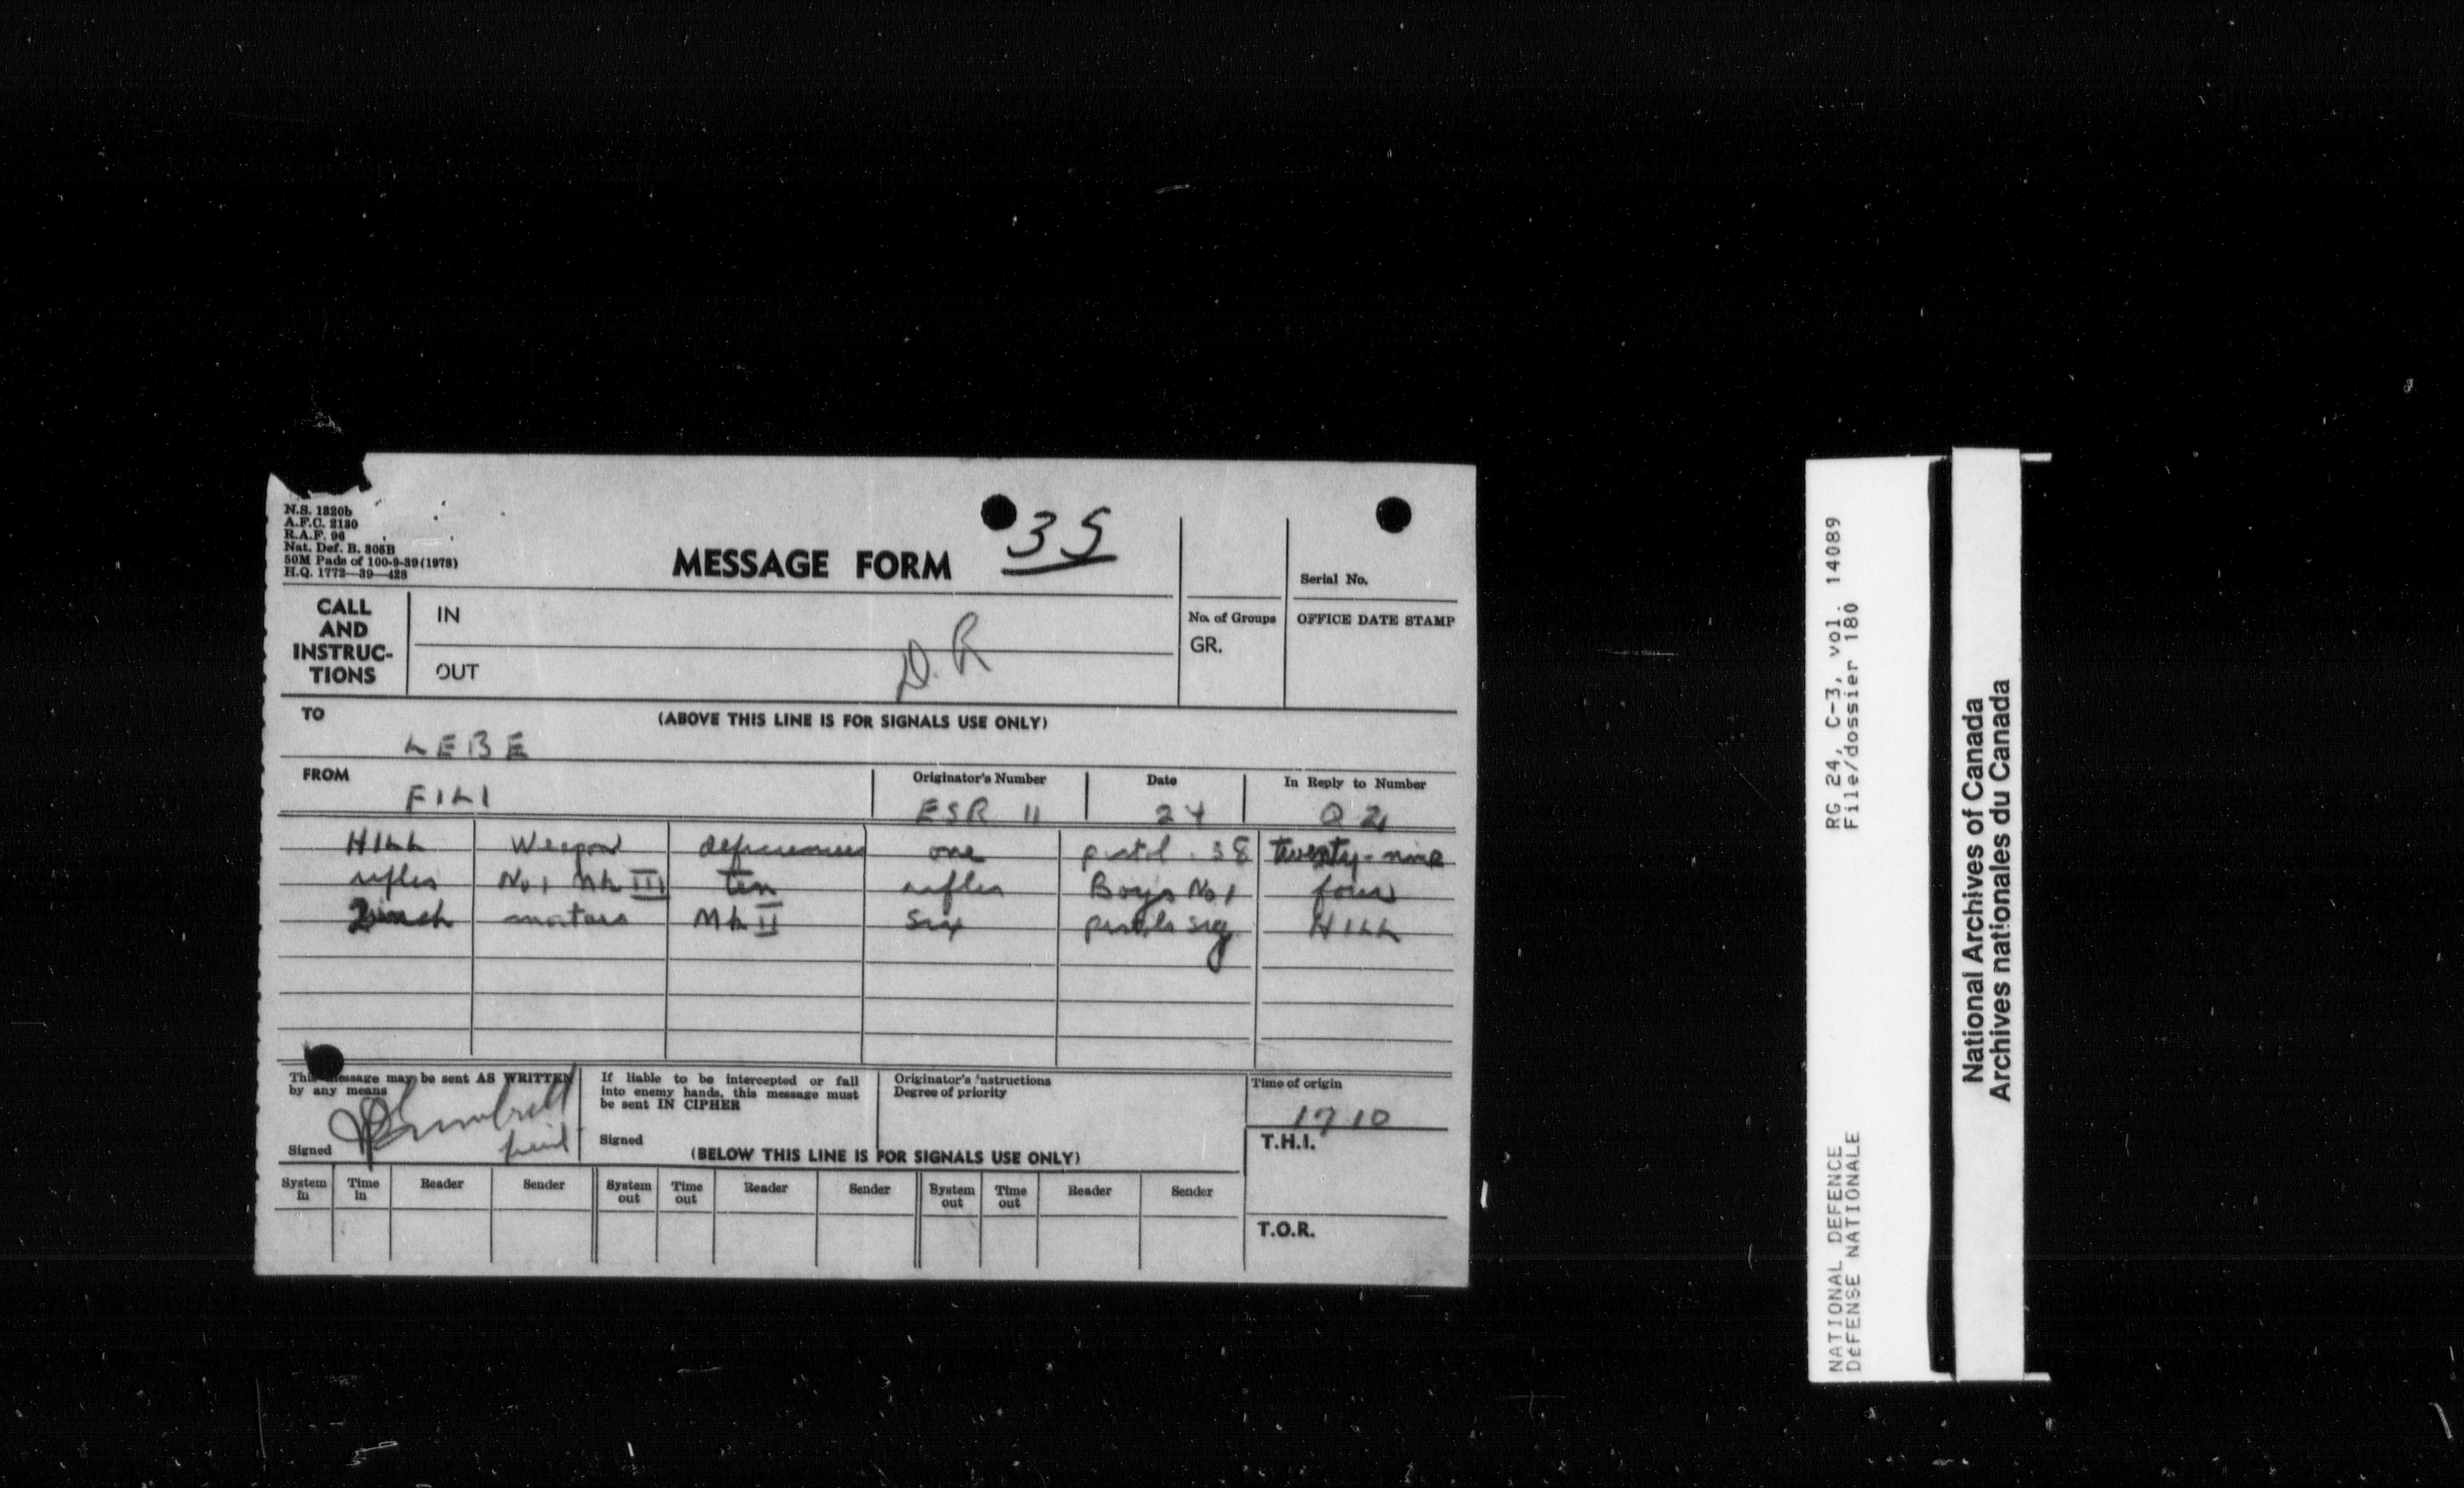 N.S. 1320b
A.F.C. 2130
R.A.F. 96
Nat. Def. B. 305B
50M Pads of 100-9-39(1978)
H.Q. 1772—39—428
MESSAGE FORM 35
Serial No.
CALL AND INSTRUC-TIONS
IN
OUT
D.R
No. of Groups
GR.
OFFICE DATE STAMP
(ABOVE THIS LINE IS FOR SIGNALS USE ONLY)
TO
LEBE
FROM
FILI
Originator's Number
ESR 11
Date
24
In Reply to Number
Q 21
HILL Weapon deficiencies one pistol .38 twenty-nine
rifles No 1 Mk III ten rifles Boys No 1 four
2 inch mortars Mk II six pistols sig HILL
This message may be sent AS WRITTEN
by any means
Signed
If liable to be intercepted or fall
into enemy hands, this message must
be sent IN CIPHER
Signed
Originator's Instructions
Degree of priority
Time of origin
1710
T.H.I.
(BELOW THIS LINE IS FOR SIGNALS USE ONLY)
System in Time in Reader Sender System out Time out Reader Sender System out Time out Reader Sender
T.O.R.
RG 24, C-3, vol. 14089
File/dossier 180
NATIONAL DEFENCE
DÉFENSE NATIONALE
National Archives of Canada
Archives nationales du Canada